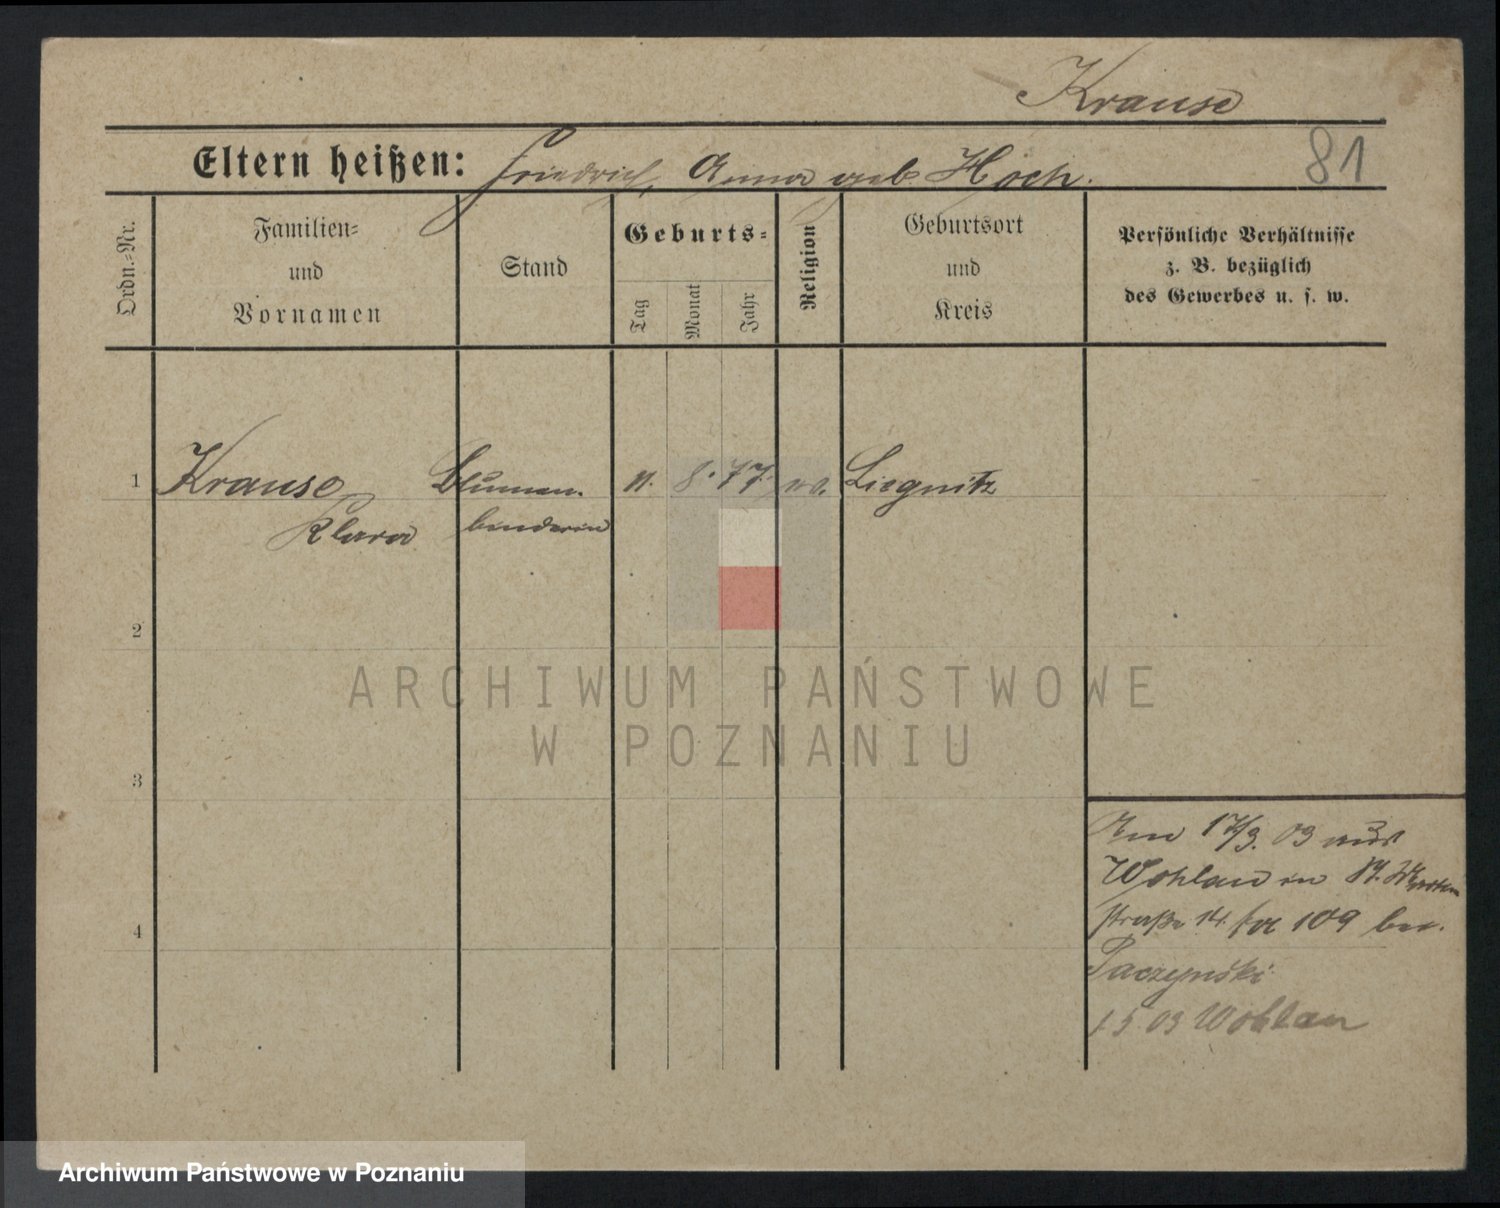 Krause
81
Eltern heißen: Friedrich, Anna geb. Hoch.
Ordn.-Nr.
Familien-
und
Vornamen
Stand
Geburts-
Tag
Monat
Jahr
Religion
Geburtsort
und
Kreis
Persönliche Verhältnisse
z. B. bezüglich
des Gewerbes u. s. w.
1 Krause Blumen- 11. 8. 77. Liegnitz
Klara binderin
2
ARCHIWUM PAŃSTWOWE
W POZNANIU
3
Am 17/3. 03 aus
Wohlau in St. Martin
straße 14. 109 bei
Paczynski
1.5 03 Wohlau
4
Archiwum Państwowe w Poznaniu